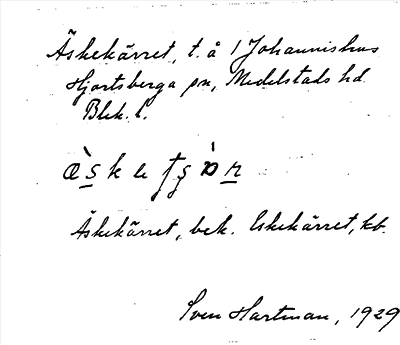 Äskekärret, t. å 1 Johannishus
Hjortsberga sn, Medelstads hd
Blek. l.
Äskekärret, bek. Eskekärret, kb.
Sven Hartman, 1929